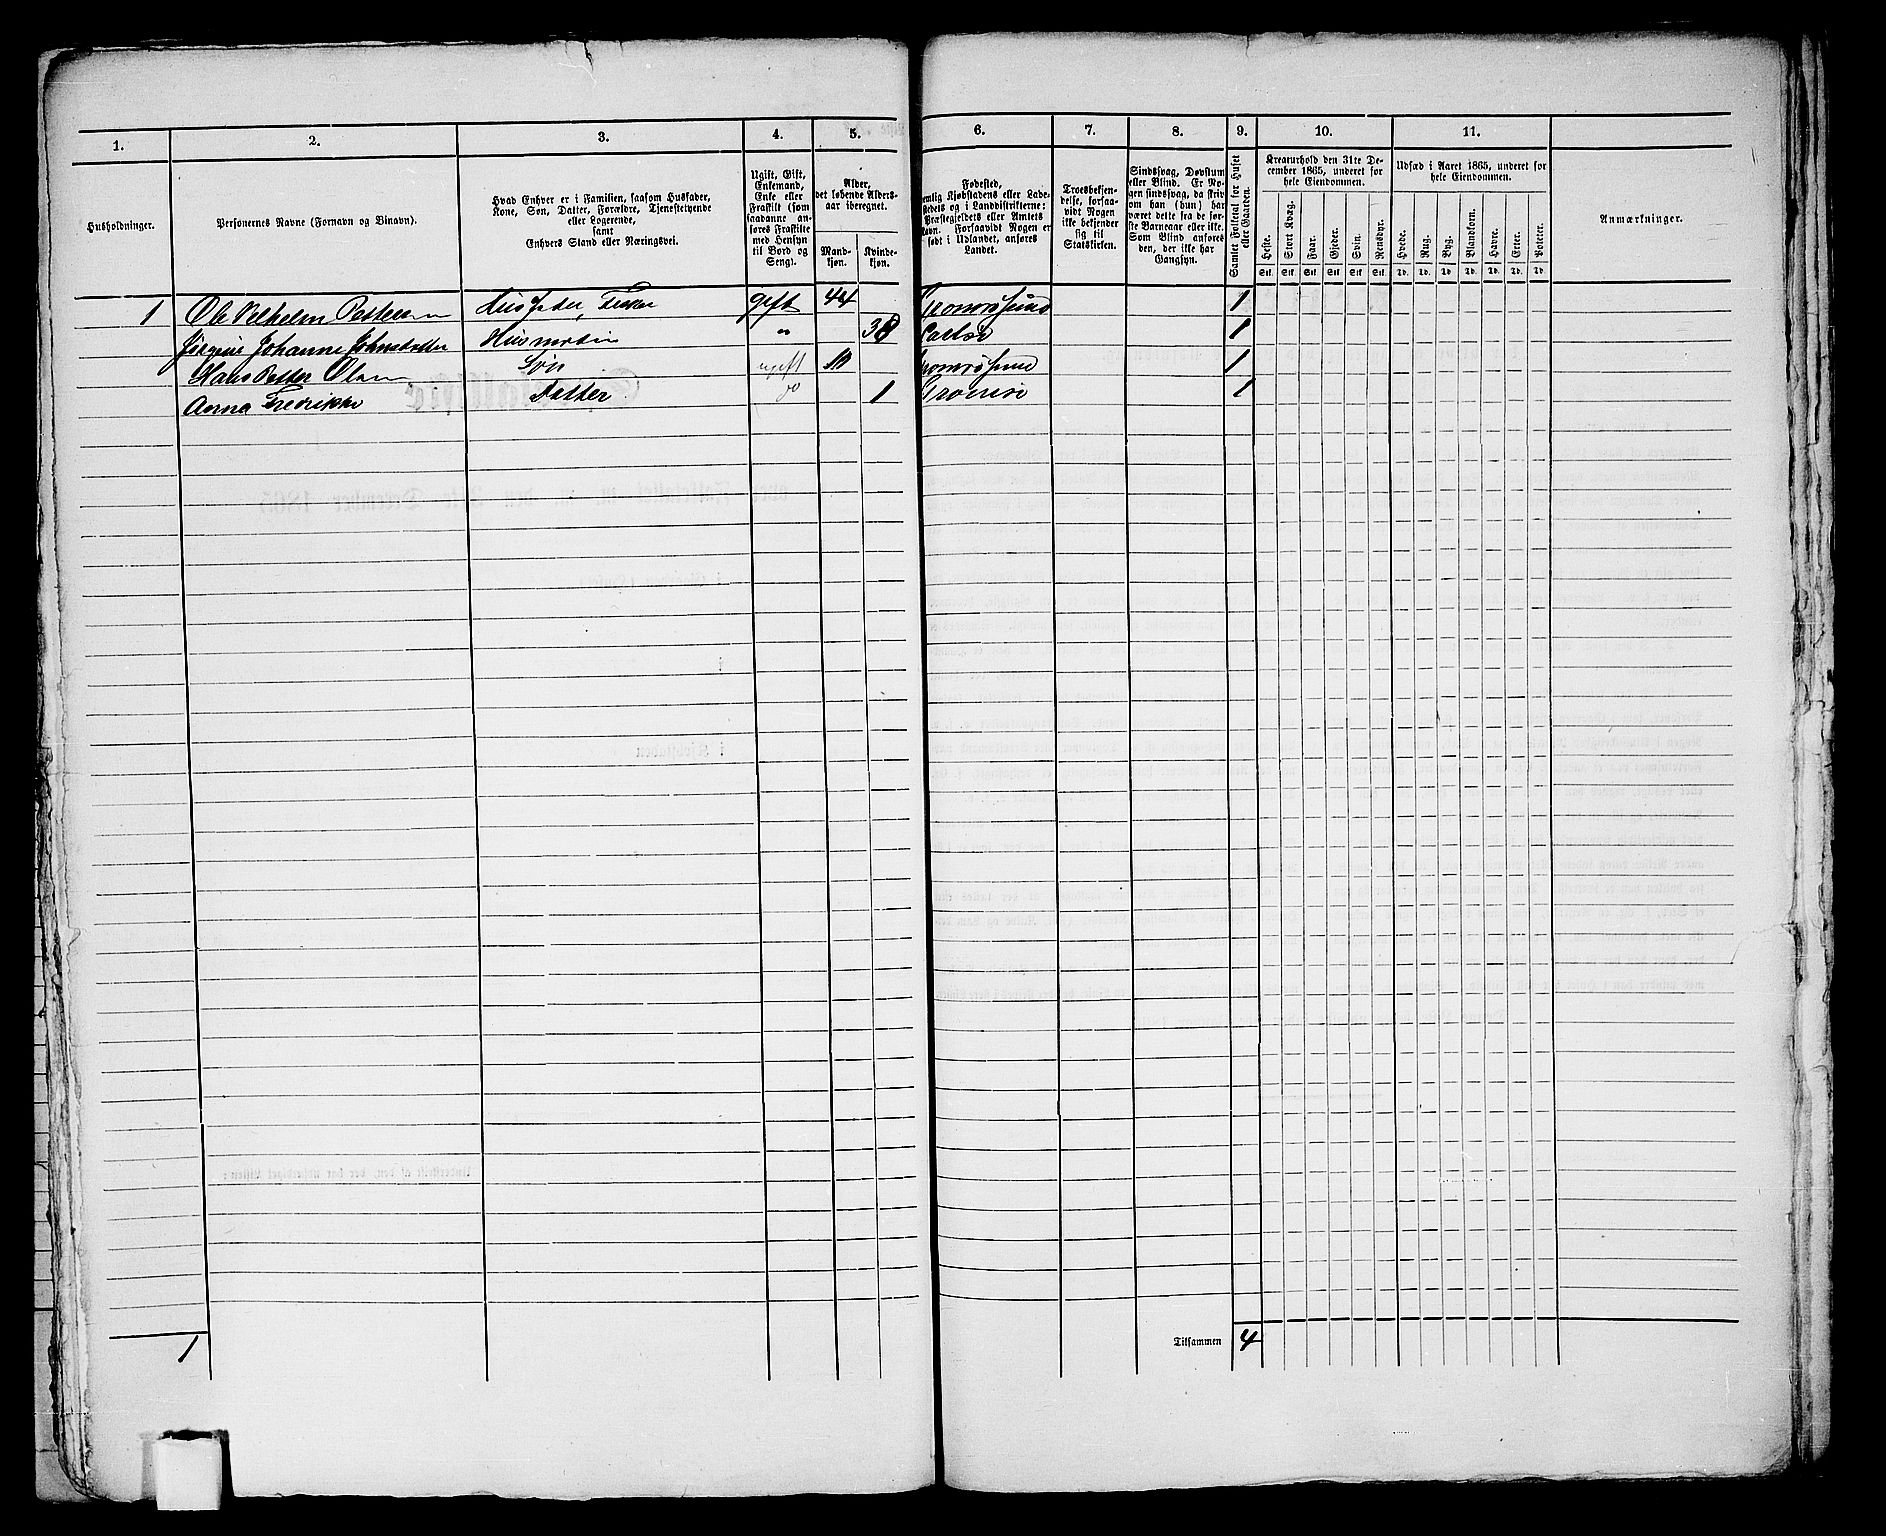 1. 2. 3. 4. 5. 6. 7. 8. 9. 10. 11.
Husholdninger.
Personernes Navne (Fornavn og Binavn).
Hvad Enhver er i Familien, saasom Husfader,
Kone, Søn, Datter, Forældre, Tjenestetyende
eller Logerende,
samt
Enhvers Stand eller Næringsvei.
Ugift, Gift,
Enkemand,
Enke eller
Fraskilt (som
saadanne an-
føres Fraskilte
med Hensyn
til Bord og
Seng).
Alder,
det løbende Alders-
aar iberegnet.
Mand-
kjøn.
Kvinde-
kjøn.
Fødested,
Kjøbstadens eller Lade-
stedets og i Landdistrikterne:
Præstegjeldets eller Amtets
Navn. Forsaavidt Nogen er
født i Udlandet, anføres
Landet.
Troesbekjen-
delse, forsaa-
vidt Nogen
ikke bekjender
sig til
Statskirken.
Sindssvag, Døvstum
eller Blind. Er No-
gen sindssvag, da skriv
om han (hun) har
været dette fra de før-
ste Barneaar eller ikke.
Som Blind anføres
den, der ikke har
Gangsyn.
Samlet Folketal for Huset
eller Gaarden.
Kreaturhold den 31te De-
cember 1865, underet for
hele Eiendommen.
Heste. Stort Kvæg. Faar. Gjeder. Svin. Rensdyr.
Stk. Stk. Stk. Stk. Stk. Stk.
Udsæd i Aaret 1865, underet for
hele Eiendommen.
Hvede. Rug. Byg. Blandkorn. Havre. Erter. Poteter.
Td. Td. Td. Td. Td. Td. Td.
Anmærkninger.
1 Ole Vilhelm Pettersen Husfader, Fisker gift 44 Tromsøsund 1
Johanne Johnsdatter Husmoder " 38 1
Hans Petter Olsen Søn ugift Tromsøsund 1
Anna Fredrikke Datter do 1 Tromsø 1
1 Tilsammen 4